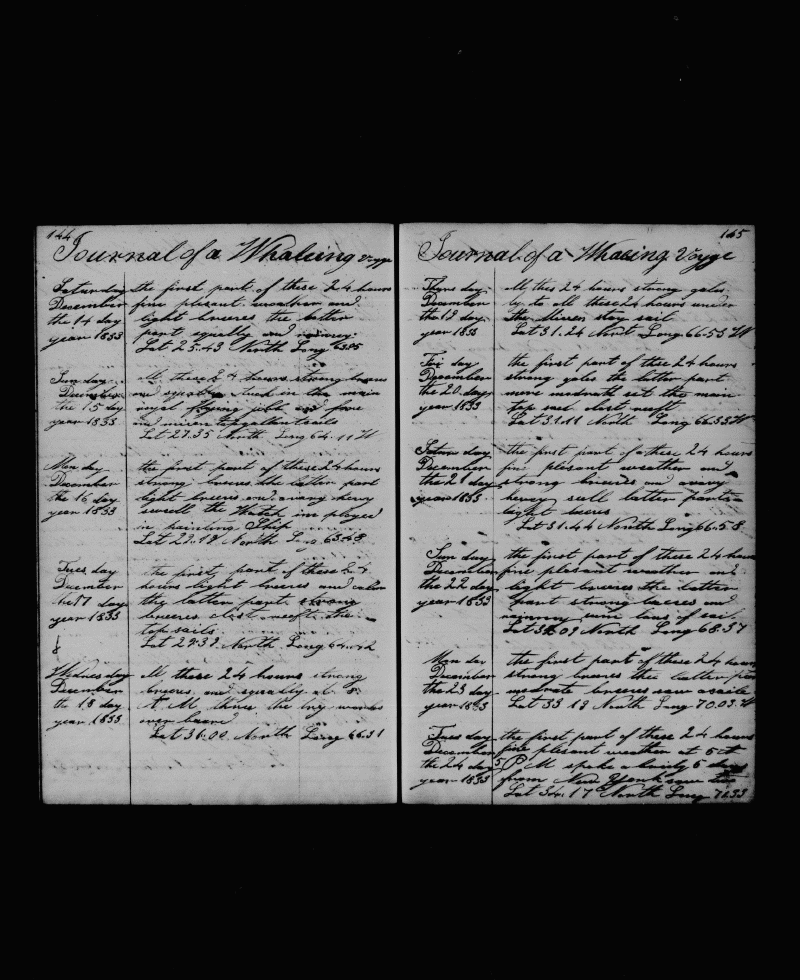 144
Journal of a Whaleing Voyge
Saturday
December
the 14 day
year 1833
the first part of these 24 hours
fine plesant weather and
light breeses the latter
part squally and rainney
Lat 25.43 North Long 63.85
Sun day
December
the 15 day
year 1833
All these 24 hours strong breeses
and squaley in the main
royal flying jibb and fore
and mizen topgallantsails
Lat 27.35 North Long 64.11 W
Mon day
December
the 16 day
year 1833
the first part of these 24 hours
strong breeses the latter part
light breeses and a very hevy
swell the Watch imployed
in painting Ship
Lat 29.12 North Long 63.48
Tues day
December
the 17 day
year 1833
the first part of these 24
hours light breeses and calm
the latter part strong
breeses clost reeft the
top sails
Lat 29.39 North Long 64.42
Wednesday
December
the 18 day
year 1833
All these 24 hours strong
breeses and squally at 8
A M threw the try works
over board
Lat 30.00 North Long 66.31
145
Journal of a Whaeing Voyge
Thurs day
December
the 19 day
year 1833
All thes 24 hours strong gales
ly to all these 24 hours under
the Mizen stay sail
Lat 31.24 North Long 66.53 W
Fri day
December
the 20 day
year 1833
the first part of thes 24 hours
strong gales the latter part
more modrate set the main
top sail clost reeft
Lat 31.11 North Long 66.33 W
Saturs day
December
the 21 day
year 1833
the first part of these 24 hours
fine plesant weather and
strong breeses and a very
hevey swell latter part
light breses
Lat 31.44 North Long 66.58
Sun day
December
the 22 day
year 1833
the first part of these 24 hours
fine plesant weather and
light breeses the latter
part strong breeses and
rainney sum sail
Lat 32.09 North Long 68.37
Mon day
December
the 23 day
year 1833
the first part of these 24 hours
strong breeses the latter part
modrate breeses saw a saile
Lat 33 12 North Long 70.03 W
Tues day
December
the 24 day
year 1833
the first part of these 24 hours
fine plesant weather at 5
P M spoke a 5 days
from New York
Lat 34.17 North Long 71.33